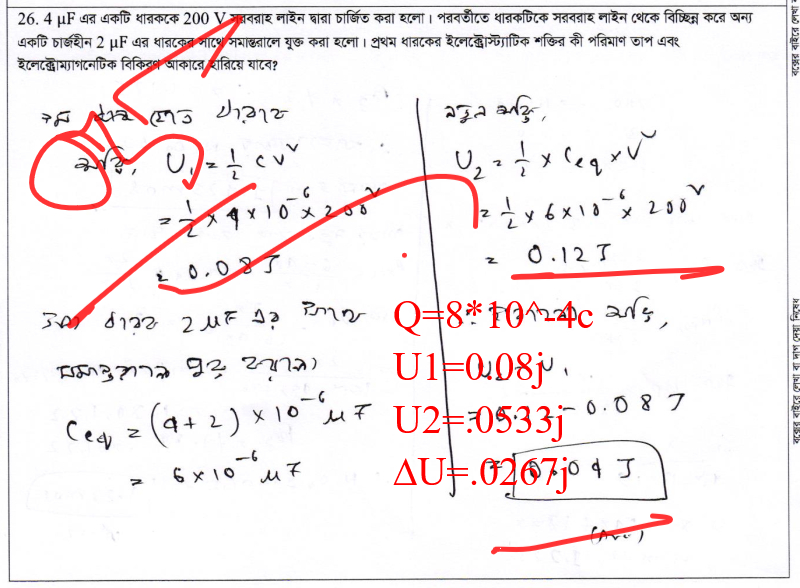 26. 4 μF এর একটি ধারককে 200 V সরবরাহ লাইন দ্বারা চার্জিত করা হলো। পরবর্তীতে ধারকটিকে সরবরাহ লাইন থেকে বিচ্ছিন্ন করে অন্য
একটি চার্জহীন 2 μF এর ধারকের সাথে সমান্তরালে যুক্ত করা হলো। প্রথম ধারকের ইলেক্ট্রোস্ট্যাটিক শক্তির কী পরিমাণ তাপ এবং
ইলেক্ট্রোম্যাগনেটিক বিকিরণ আকারে হারিয়ে যাবে?
শক্তি, U₁ = 1/2 CV²
= 1/2 × 4 × 10⁻⁶ × 200²
= 0.08 J
ধারক 2 μF এর সাথে
সমান্তরালে যুক্ত করলে।
Ceq = (4+2) × 10⁻⁶ μF
= 6 × 10⁻⁶ μF
নতুন শক্তি,
U₂ = 1/2 × Ceq × V²
= 1/2 × 6 × 10⁻⁶ × 200²
= 0.12 J
শক্তি,
- 0.08 J
= 0.04 J
(Ans)
Q=8*10^-4c
U1=0.08j
U2=.0533j
ΔU=.0267j
বক্সের বাইরে লেখা বা দাগ দেয়া নিষেধ